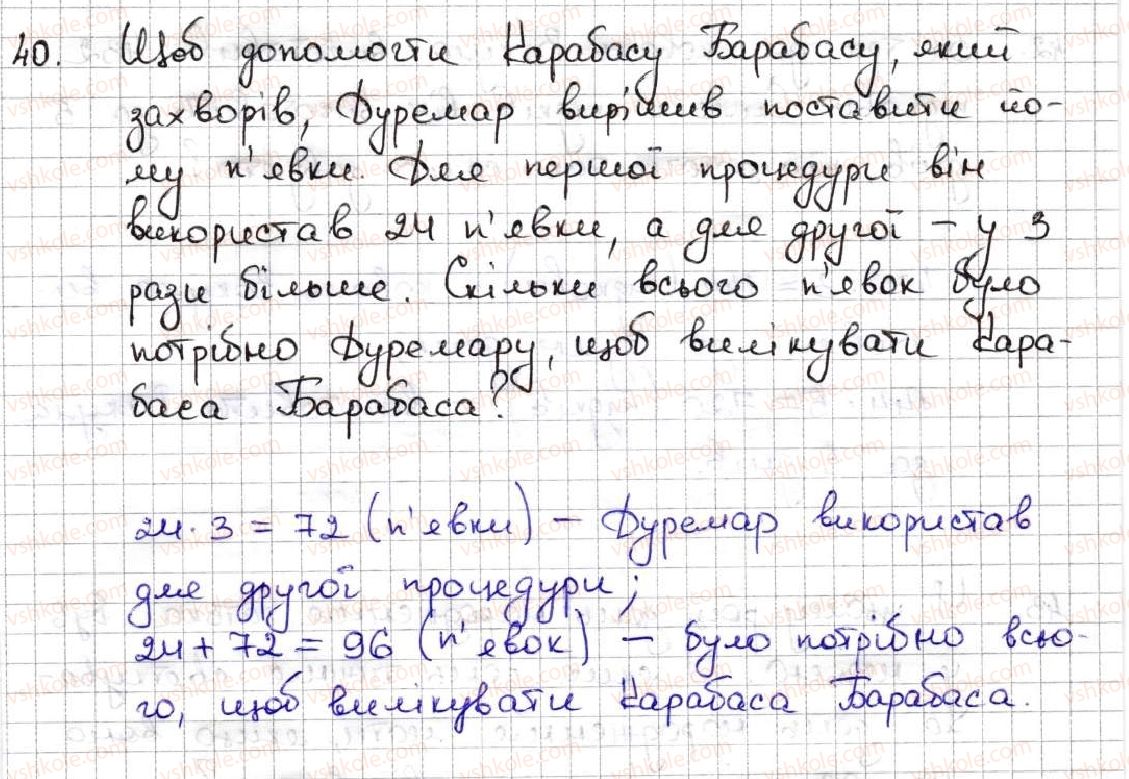 40. Щоб допомогти Карабасу Барабасу, який
захворів, Дуремар вирішив поставити йо-
му п'явки. Для першої процедури він
використав 24 п'явки, а для другої – у 3
рази більше. Скільки всього п'явок було
потрібно Дуремару, щоб вилікувати Кара-
баса Барабаса?
24 · 3 = 72 (п'явки) – Дуремар використав
для другої процедури;
24 + 72 = 96 (п'явок) – було потрібно всьо-
го, щоб вилікувати Карабаса Барабаса.